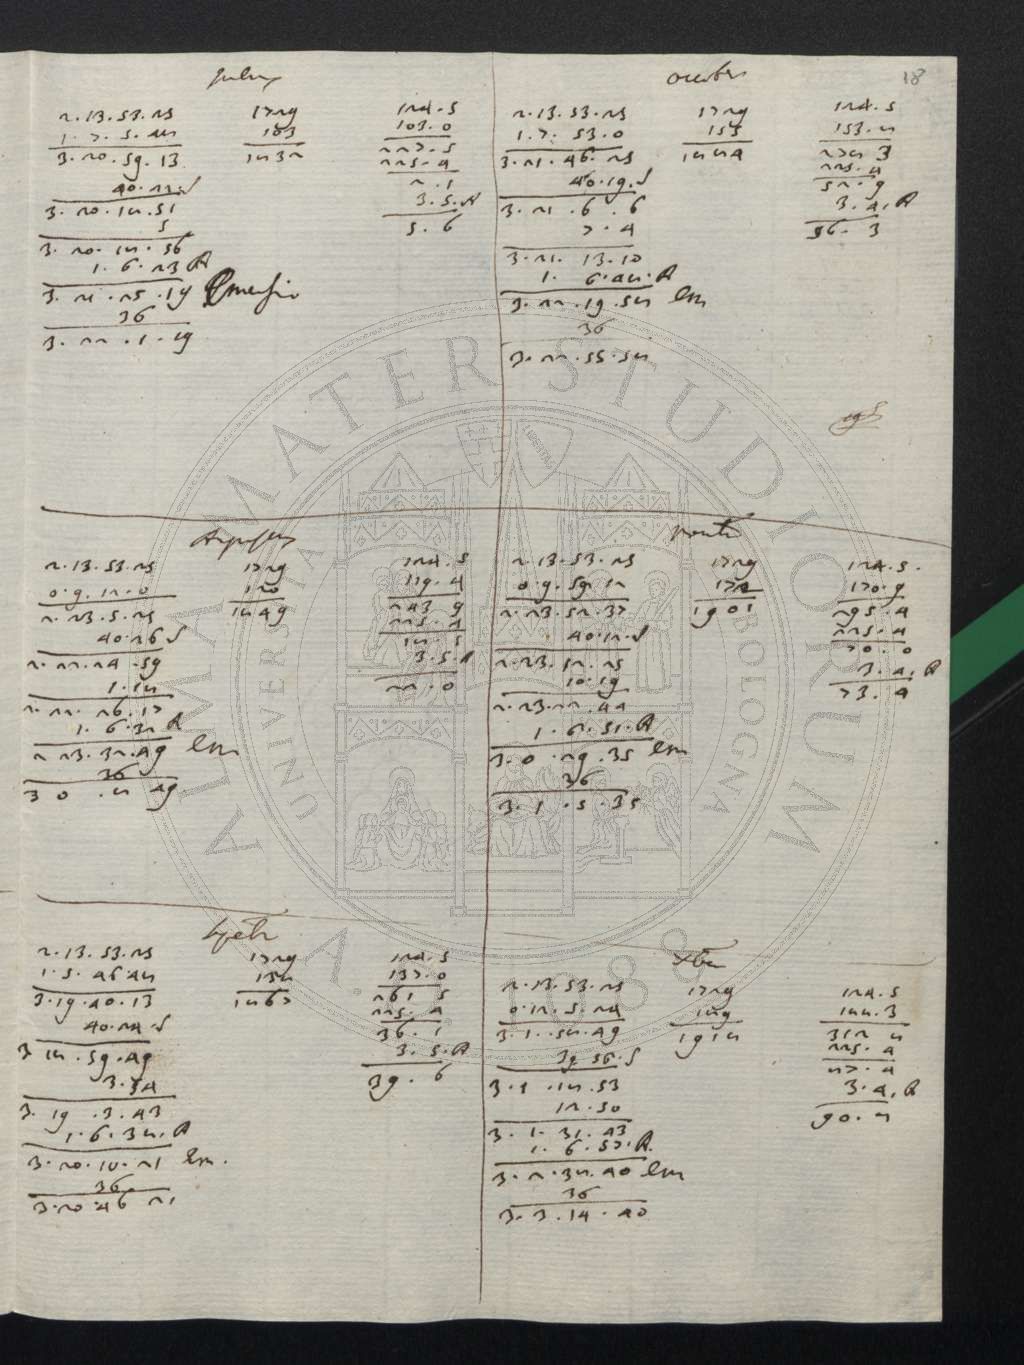 18
Julius
2.13.53.25
1.7.5.48
3.20.59.13
40.22.S
3.20.18.51
5
3.20.18.56
1.6.23 A
3.21.25.19 Emersio
36
3.22.1.19
1729
103
1832
124.5
103.0
227.5
225.4
2.1
3.5.A
5.6
October
2.13.53.25
1.7.53.0
3.21.46.25
40.19.S
3.21.6.6
7.4
3.21.13.10
1.6.48.A
3.22.19.58 Em
36
3.22.55.58
1729
155
1884
124.5
153.8
278.3
225.4
52.9
3.4.A
56.3
Augustus
2.13.53.25
0.9.12.0
2.23.5.25
40.26 S
2.22.24.59
1.18
2.22.26.17
1.6.32 A
2.23.32.49 Em
36
3 0.8 49
1729
120
1849
124.5
119.4
243 9
225.4
18.5
3.5.A
22.0
2.13.53.25
0.9.59.12
2.23.52.37
40.12.S
2.23.12.25
10.19
2.23.22.44
1.6.51.A
3.0.29.35 Em
36
3.1.5.35
1729
172
1901
124.5.
170.9
295.4
225.4
70.0
3.4.A
73.4
2.13.53.25
1.5.46.48
3.19.40.13
40.24.S
3 18.59.49
3.54
3.19.3.43
1.6.38.A
3.20.10.21 Em.
36
3.20.46 21
1729
138
1867
124.5
137.0
261 5
225.4
36.1
3.5.A
39.6
Xbr
2.13.53.25
0.12.5.24
3.1.58.49
39 56.S
3.1.18.53
12.50
3.1.31.43
1.6.57.A.
3.2.38.40 Em
36
3.3.14.40
1729
189
1918
124.5
188.3
312 8
225.4
87.4
3.4.A
90.8
ALMA MATER STUDIORUM
UNIVERSITAS BONONIENSIS
A.D. 1088